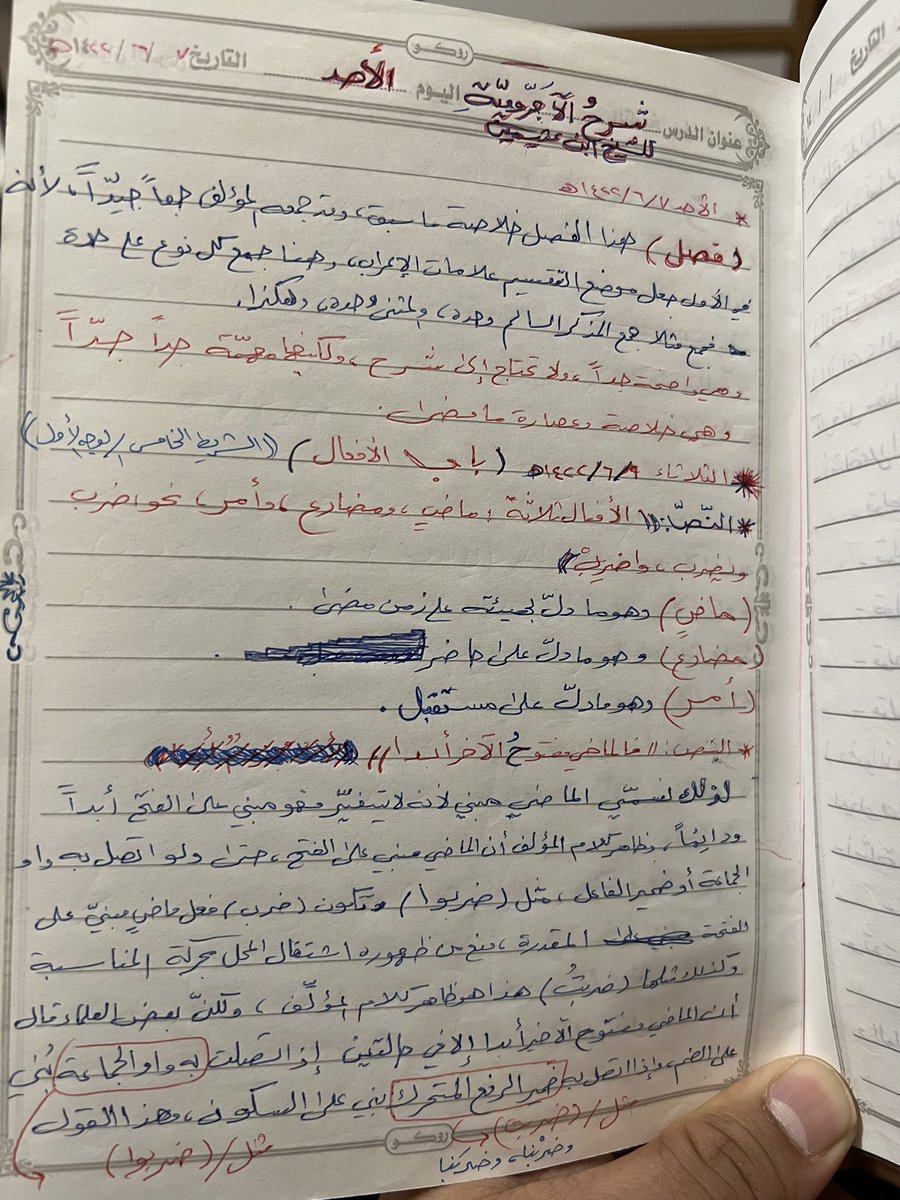 روكو
عنوان الدرس شرحُ الآجُرُّوميّة اليوم الأحد التاريخ ٧ / ٦ / ١٤٢٢هـ
للشيخ ابن عثيمين
* الأحد ١٤٢٢/٦/٧هـ
(فصل) هذا الفصل خلاصة ما سبق، وقد جمعه المؤلف جمعاً جيّداً، لأنه
في الأول جعل موضع التقسيم علامات الإعراب، وهنا جمع كل نوع على حدة
فجمع مثلا جمع المذكر السالم وحده، والمثنى وحده، وهكذا.
وهي واضحة جداً، ولا تحتاج إلى شرح، ولكنها مهمّة جداً جدّاً
وهي خلاصة وعصارة ما مضى.
* الثلاثاء ١٤٢٢/٦/٩هـ (باب الأفعال) (الشريط الخامس / الوجه الأول)
* النّصّ: "الأفعال ثلاثة: ماضي، ومضارع، وأمر، نحو ضرب
ويضرب، واضربْ"
(ماضٍ) وهو ما دلّ بهيئته على زمن مضى.
(مضارع) وهو ما دلّ على حاضر .
(أمر) وهو ما دلّ على مستقبل.
* النص: "فالماضي مفتوحُ الآخر أبدا"
لذلك نسمّي الماضي مبني لأنه لا يتغيّر فهو مبني على الفتح أبداً
ودائماً، وظاهر كلام المؤلف أن الماضي مبني على الفتح، حتى ولو اتصل به واو
الجماعة أو ضمير الفاعل، مثل (ضربوا) وتكون (ضرب) فعل ماضي مبنيّ على
الفتحة المقدرة، منع من ظهوره اشتغال المحل بحركة المناسبة
وكذلك مثلها (ضربتُ) هذا هو ظاهر كلام المؤلّف، ولكنّ بعض العلماء قال
أن الماضي مفتوح الآخر أبدا إلا في حالتين إذا اتصلت به واو الجماعة بُني
على الضم، وإذا اتصل به ضمير الرفع المتحرك بني على السكون، وهذا القول
روكو
مثل / (ضربت)
مثل / (ضربوا)
وضربْنا،